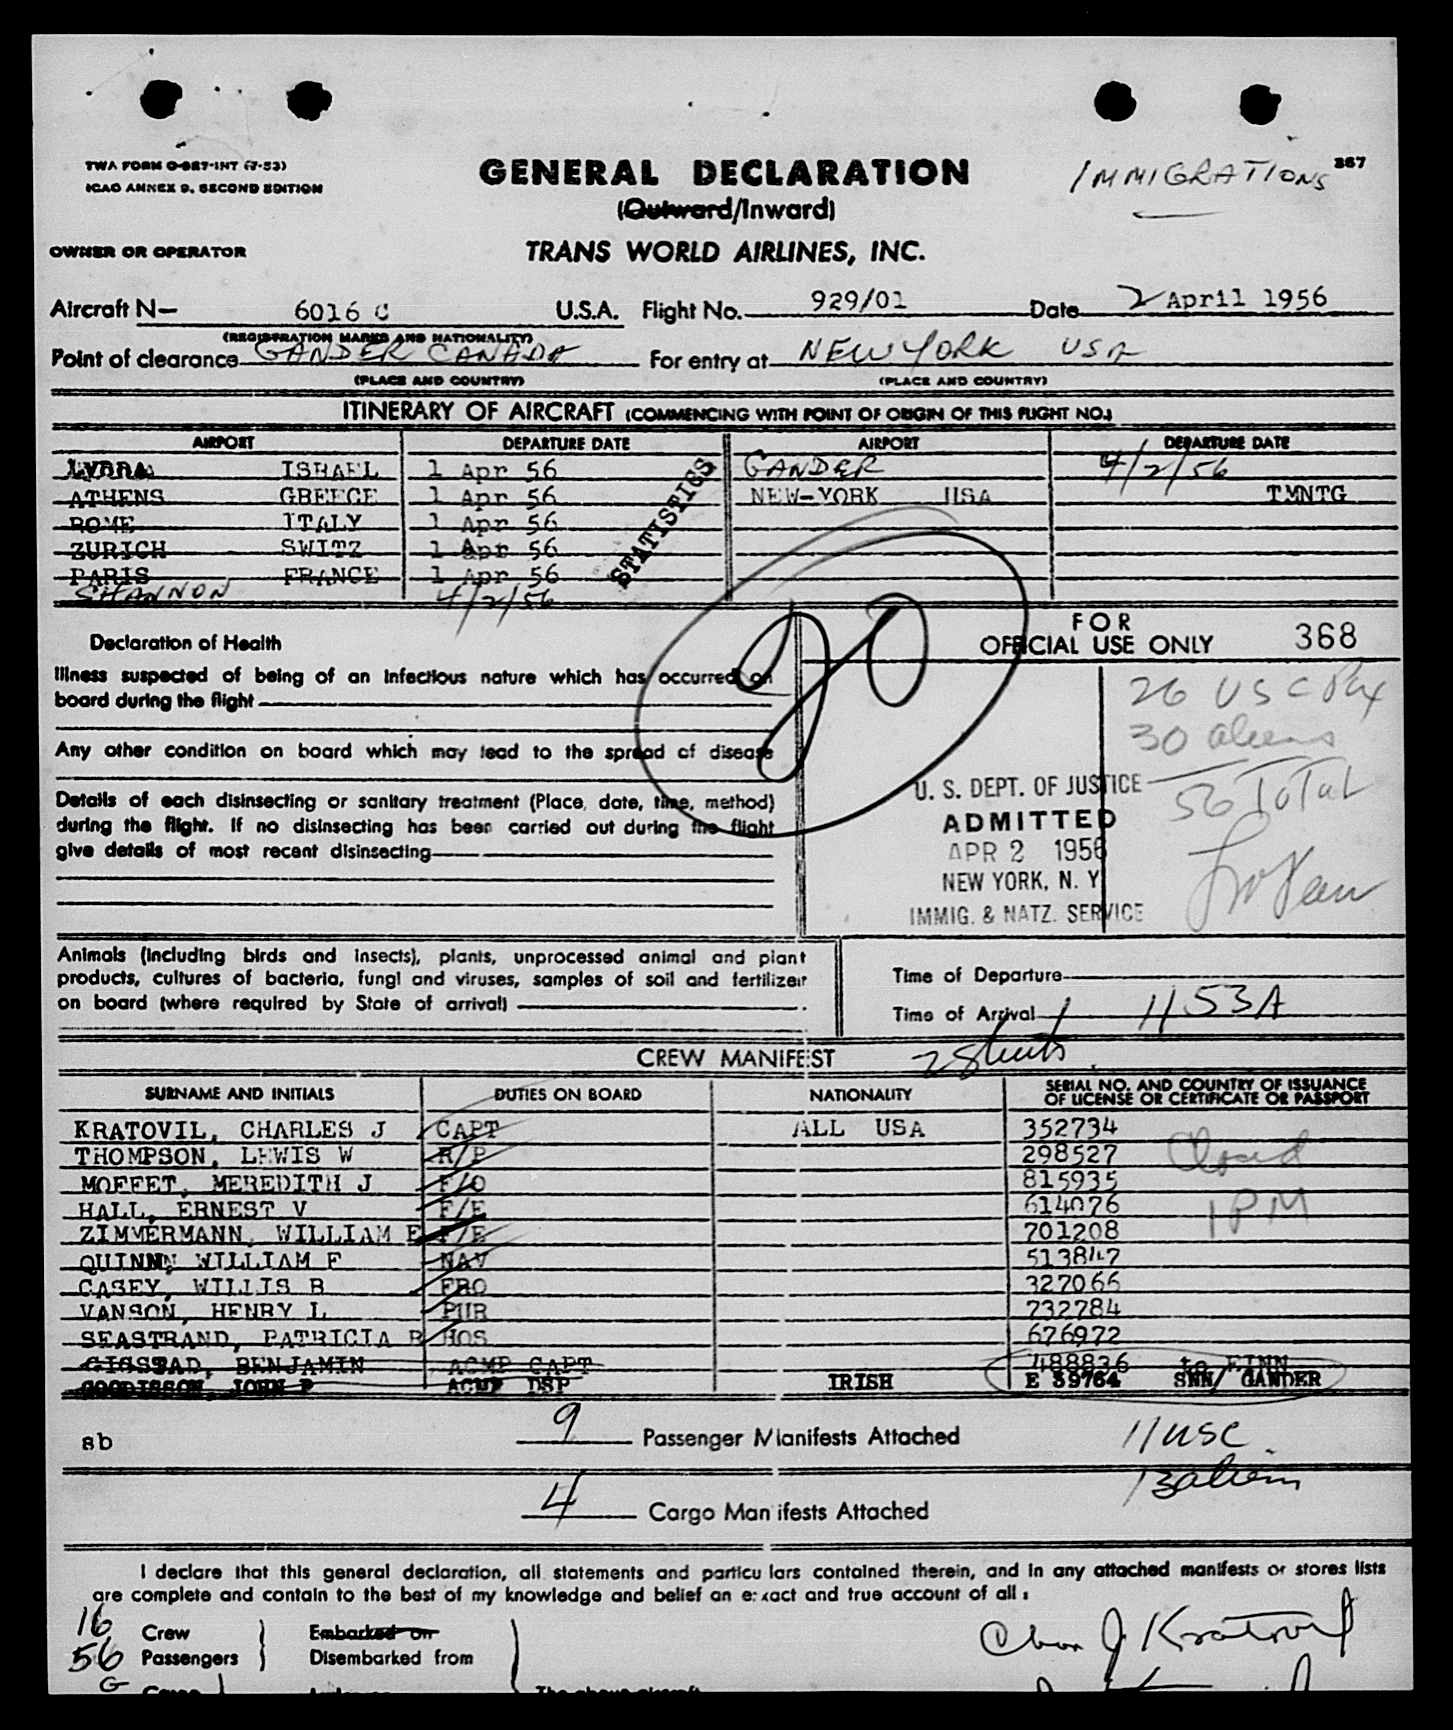 TWA FORM O-987-INT (7-53)
ICAO ANNEX 9, SECOND EDITION
GENERAL DECLARATION
(Outward/Inward)
IMMIGRATIONS
367
OWNER OR OPERATOR
TRANS WORLD AIRLINES, INC.
Aircraft N— 6016 C U.S.A. Flight No. 929/01 Date 2 April 1956
(REGISTRATION MARKS AND NATIONALITY)
Point of clearance GANDER CANADA For entry at NEW YORK USA
(PLACE AND COUNTRY) (PLACE AND COUNTRY)
ITINERARY OF AIRCRAFT (COMMENCING WITH POINT OF ORIGIN OF THIS FLIGHT NO.)
AIRPORT DEPARTURE DATE AIRPORT DEPARTURE DATE
LYDDA ISRAEL 1 Apr 56 GANDER 4/2/56
ATHENS GREECE 1 Apr 56 NEW-YORK USA TMNTG
ROME ITALY 1 Apr 56
ZURICH SWITZ 1 Apr 56
PARIS FRANCE 1 Apr 56
SHANNON 4/2/56
STATISTICS
Declaration of Health
FOR
OFFICIAL USE ONLY 368
Illness suspected of being of an infectious nature which has occurred on
board during the flight
Any other condition on board which may lead to the spread of disease
Details of each disinsecting or sanitary treatment (Place, date, time, method)
during the flight. If no disinsecting has been carried out during the flight
give details of most recent disinsecting
26 USC Pax
30 aliens
56 Total
U. S. DEPT. OF JUSTICE
ADMITTED
APR 2 1956
NEW YORK, N. Y
IMMIG. & NATZ. SERVICE
Animals (including birds and insects), plants, unprocessed animal and plant
products, cultures of bacteria, fungi and viruses, samples of soil and fertilizer
on board (where required by State of arrival)
Time of Departure
Time of Arrival 1153A
CREW MANIFEST
SURNAME AND INITIALS DUTIES ON BOARD NATIONALITY SERIAL NO. AND COUNTRY OF ISSUANCE
OF LICENSE OR CERTIFICATE OR PASSPORT
KRATOVIL, CHARLES J CAPT ALL USA 352734
THOMPSON, LEWIS W R/P 298527
MOFFET, MEREDITH J F/O 815935
HALL, ERNEST V F/E 614076
ZIMMERMANN, WILLIAM E F/E 701208
QUINN, WILLIAM F NAV 513847
CASEY, WILLIS B FRO 327066
VANSON, HENRY L PUR 732784
SEASTRAND, PATRICIA B HOS 676972
GISSTAD, BENJAMIN ACMP CAPT 488836 to FINN
GOODISSON, JOHN P ACMP DSP IRISH E 39764 SNN/ GANDER
Closed
1 PM
sb
9 Passenger Manifests Attached
11 USC
4 Cargo Manifests Attached
I declare that this general declaration, all statements and particulars contained therein, and in any attached manifests or stores lists
are complete and contain to the best of my knowledge and belief an exact and true account of all :
16 Crew Embarked on
56 Passengers Disembarked from
Chas J Kratovil
G Cargo
The above aircraft